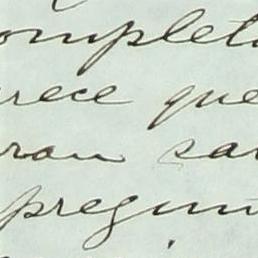 omplet
rece que
ron sa
pregun